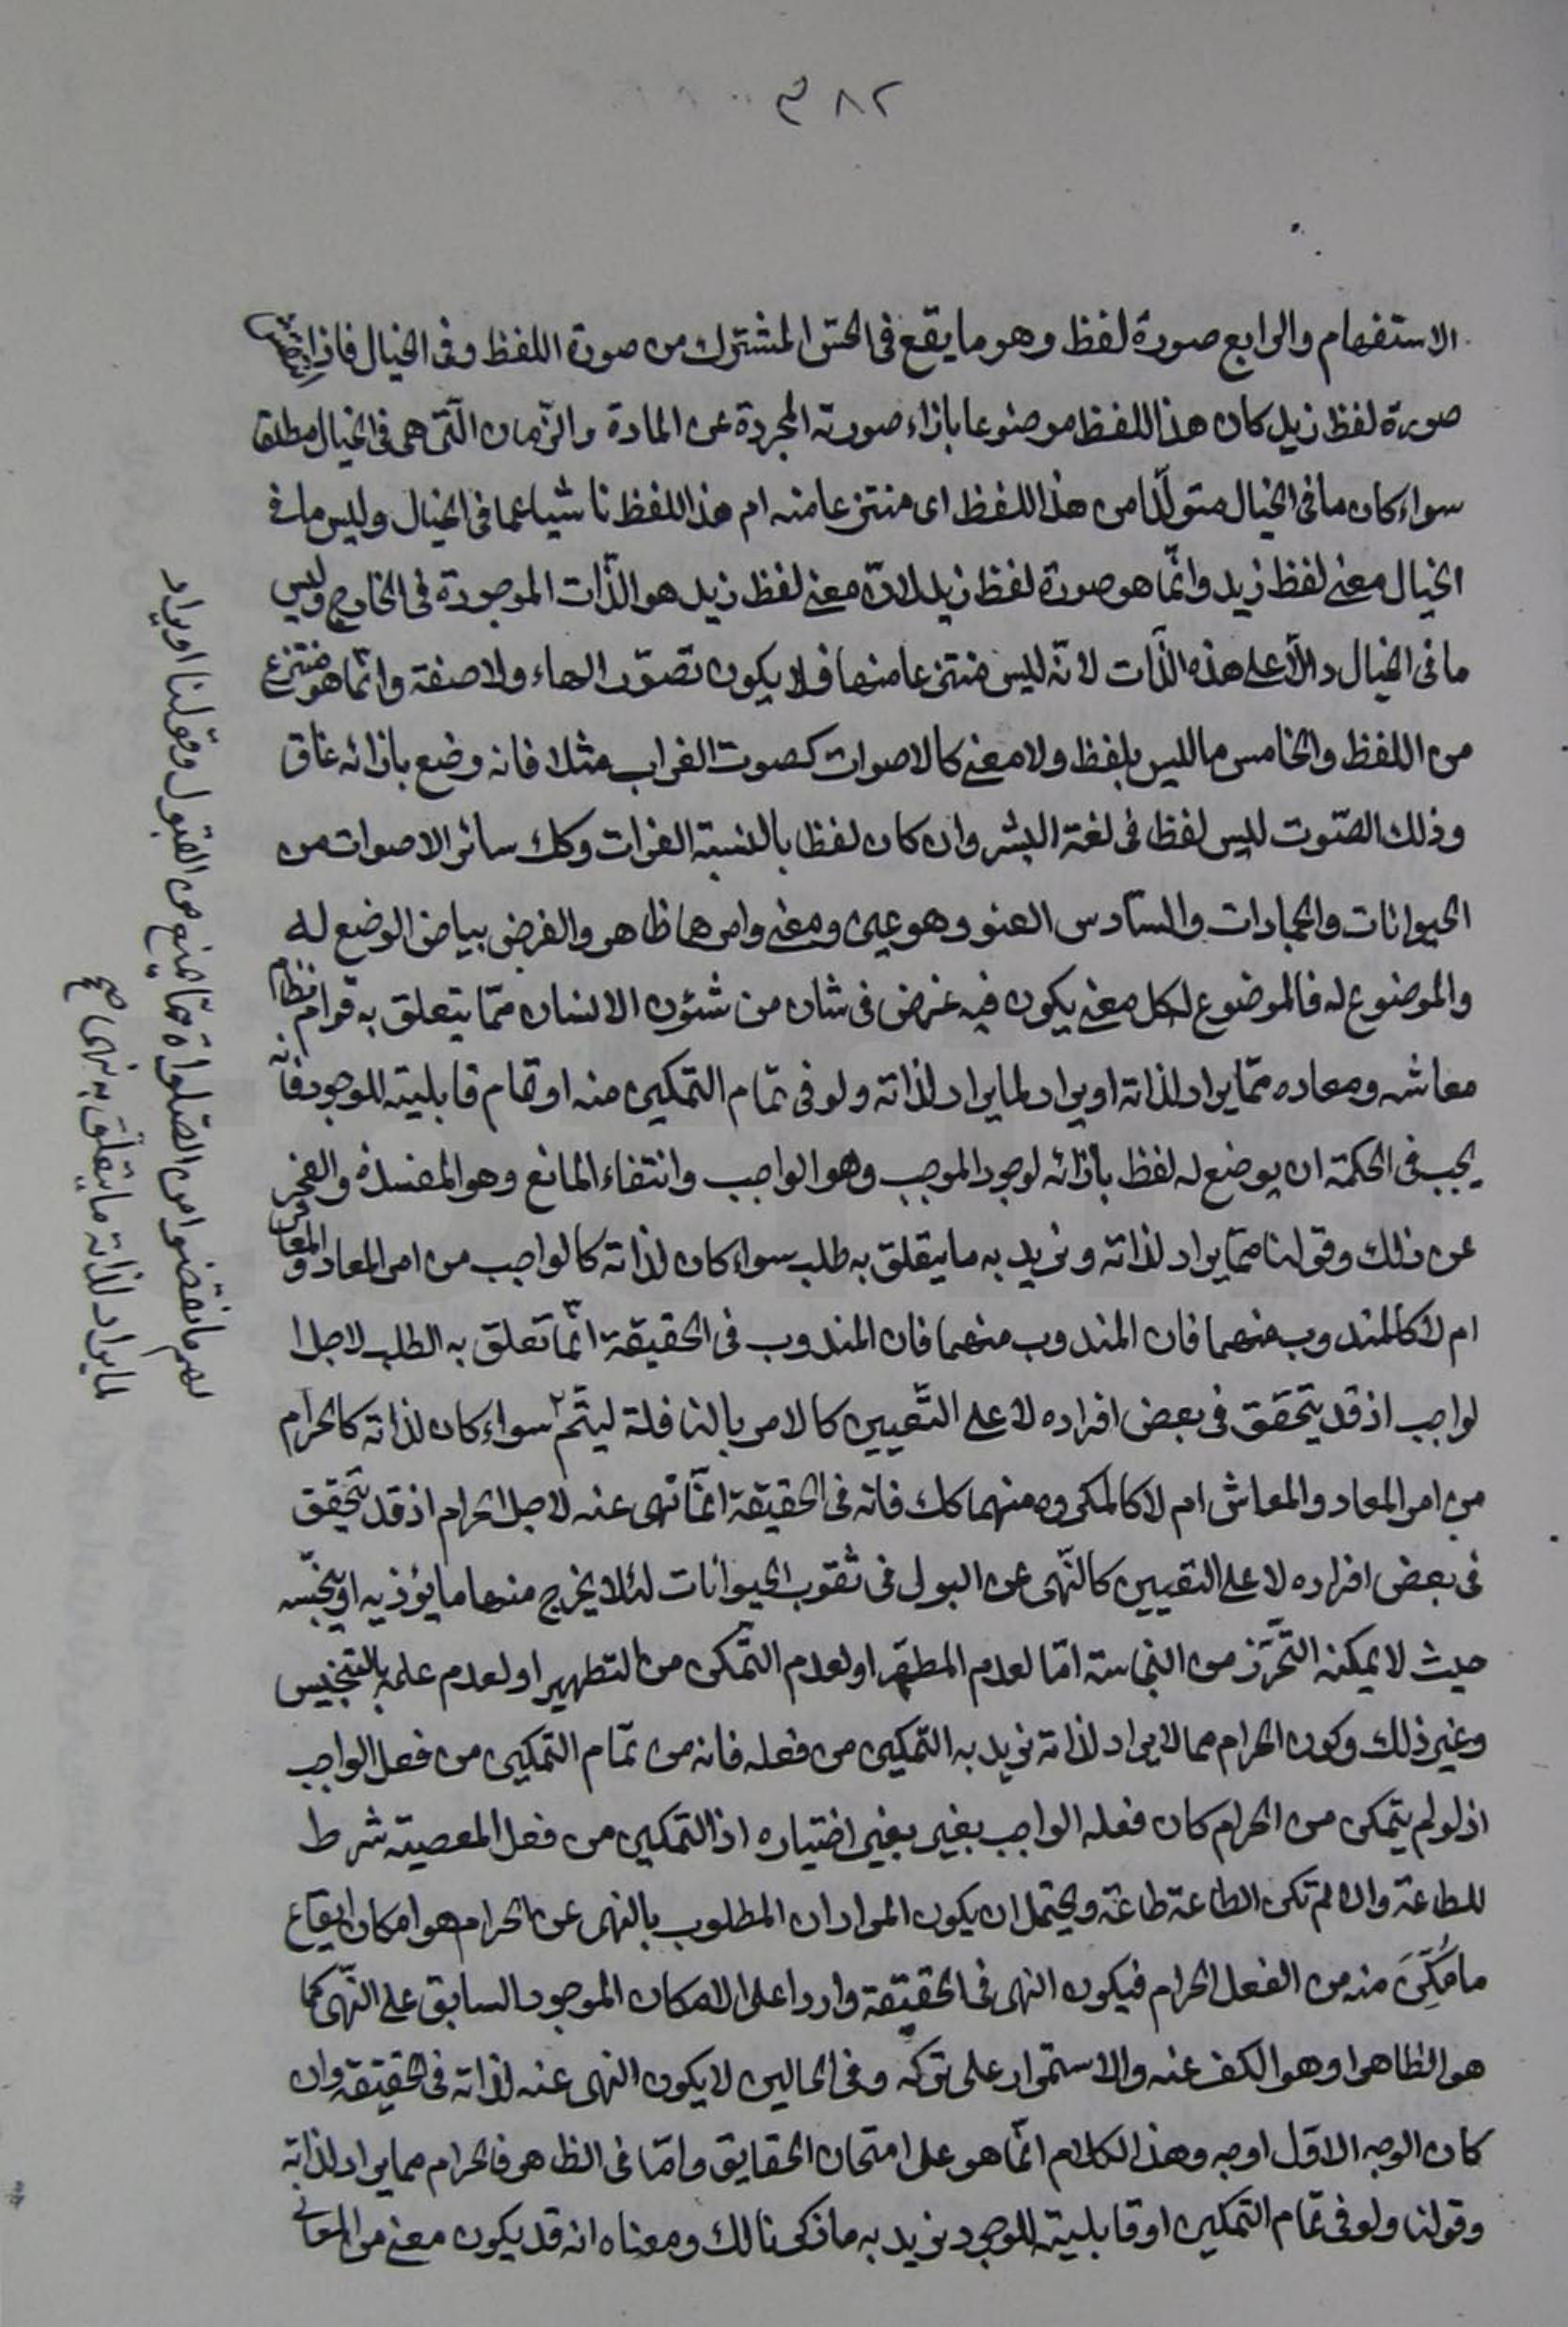 ٣٨٢
الاستفهام والرابع صورة لفظ وهو ما يقع فى الحسّ المشترك من صورة اللفظ وفى الخيال فاذا
صورة لفظ زيد كان هذا اللفظ موضوعا بازاء صورته المجردة عن المادة والزّمان الّتى هى فى الخيال مطلقا
سواء كان ما فى الخيال متولّدا من هذا اللفظ اى منتزعا منه ام هذا اللفظ ناشيا عما فى الخيال وليس ما فى
الخيال معنى لفظ زيد وانّما هو صورة لفظ زيد لانّ معنى لفظ زيد هو الذّات الموجودة فى الخارج وليس
ما فى الخيال دالّا على هذه الذّات لانّه ليس منتزعا منها فلا يكون تصوّرا لها ولا صفة وانّما هو منتزع
من اللفظ والخامس ما ليس بلفظ ولا معنى كالاصوات كصوت الغراب مثلا فانه وضع بازائه غاق
وذلك الصّوت ليس لفظا فى لغة البشر وان كان لفظا بالنسبة الغراب وكك سائر الاصوات من
الحيوانات والجمادات والسّادس العنو وهو عين ومعنى وامرهما ظاهر والغرض بيان الوضع له
والموضوع له فالموضوع لكل معنى يكون فيه غرض فى شان من شئون الانسان ممّا يتعلق به قوام نظام
معاشه ومعاده ممّا يراد لذاته او يراد لما يراد لذاته ولو فى تمام التمكين منه او تمام قابليته للوجود فانّه
يجب فى الحكمة ان يوضع له لفظ بازائه لوجود الموجب وهو الواجب وانتفاء المانع وهو المفسدة والعجز
عن ذلك وقولنا ممّا يراد لذاته ونريد به ما يتعلق به طلب سواء كان لذاته كالواجب من امر المعاد والمعاش
ام لا كالمندوب منهما فان المندوب منهما فان المندوب فى الحقيقة انّما تعلق به الطلب لاجل ا
لواجب اذ قد يتحقق فى بعض افراده لا على التّعيين كالامر بالنافلة ليتمّ ٢ سواء كان لذاته كالحرام
من امر المعاد والمعاش ام لا كالمكروه منهما كك فانه فى الحقيقة انّما نهى عنه لاجل الحرام اذ قد يتحقق
فى بعض افراده لا على التعيين كالنّهى عن البول فى ثقوب الحيوانات لئلا يخرج منها ما يؤذيه او ينجّسه
حيث لا يمكنه التّحرّز من النجاسة امّا لعدم المطهّر او لعدم التّمكن من التطهير او لعدم علمه بالتنجيس
وغير ذلك وكون الحرام مما لا يراد لذاته نريد به التّمكين من فعله فانه من تمام التمكين من فعل الواجب
اذ لو لم يتمكن من الحرام كان فعله الواجب بغير بغير اختياره اذ التمكين من فعل المعصية شرط
للطاعة والا لم تكن الطاعة طاعة ويحتمل ان يكون المراد ان المطلوب بالنهى عن الحرام هو امكان ايقاع
ما مُكِّنَ منه من الفعل الحرام فيكون النهى فى الحقيقة واردا على الامكان الموجود السابق على النّهى كما
هو الظاهر او هو الكف عنه والاستمرار على تركه وفى الحالين لا يكون النهى عنه لذاته فى الحقيقة وان
كان الوجه الاوّل اوجه وهذا الكلام انّما هو على امتحان الحقايق وامّا فى الظاهر فالحرام مما يراد لذاته
وقولنا ولو فى تمام التمكين او قابلية للوجود نريد به ما ذكرنا لك ومعناه انه قد يكون معنى من المعانى
ما نقضوا من الصّلواة ممّا يمنع من القبول وقولنا او يراد
لما يراد لذاته ما يتعلّق به نهى صح